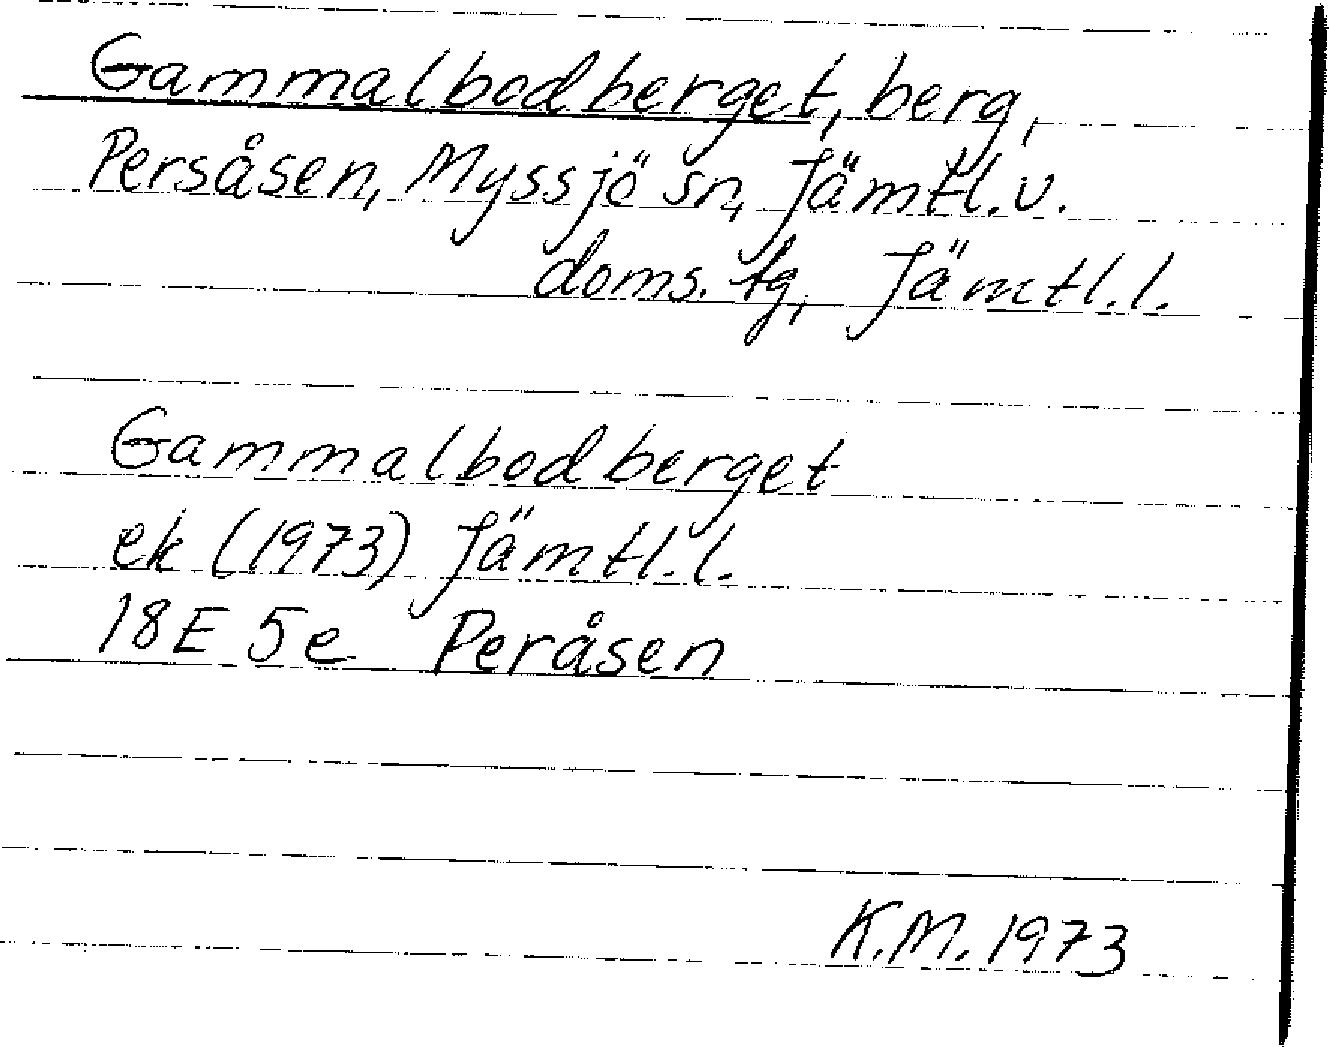 Gammalbodberget, berg,
Persåsen, Myssjö sn, Jämtl.v.
doms. tg, Jämtl.l.
Gammalbodberget
ek (1973) Jämtl.l.
18E 5e Peråsen
K.M. 1973